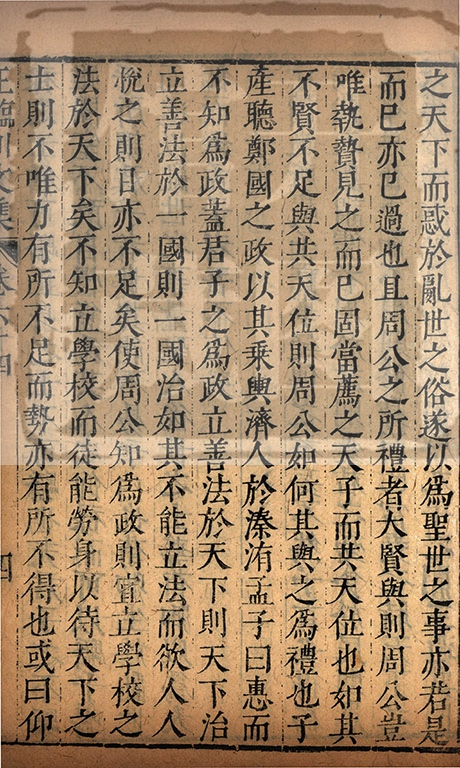 之天下而惑於亂世之俗遂以爲聖世之事亦若是
而已亦已過也且周公之所禮者大賢與則周公豈
唯執贄見之而已固當薦之天子而共天位也如其
不賢不足與共天位則周公如何其與之爲禮也子
產聽鄭國之政以其乘輿濟人於溱洧孟子曰惠而
不知爲政蓋君子之爲政立善法於天下則天下治
立善法於一國則一國治如其不能立法而欲人人
悅之則日亦不足矣使周公知爲政則宜立學校之
法於天下矣不知立學校而徒能勞身以待天下之
士則不唯力有所不足而勢亦有所不得也或曰仰
王臨川文集 卷六十四 四